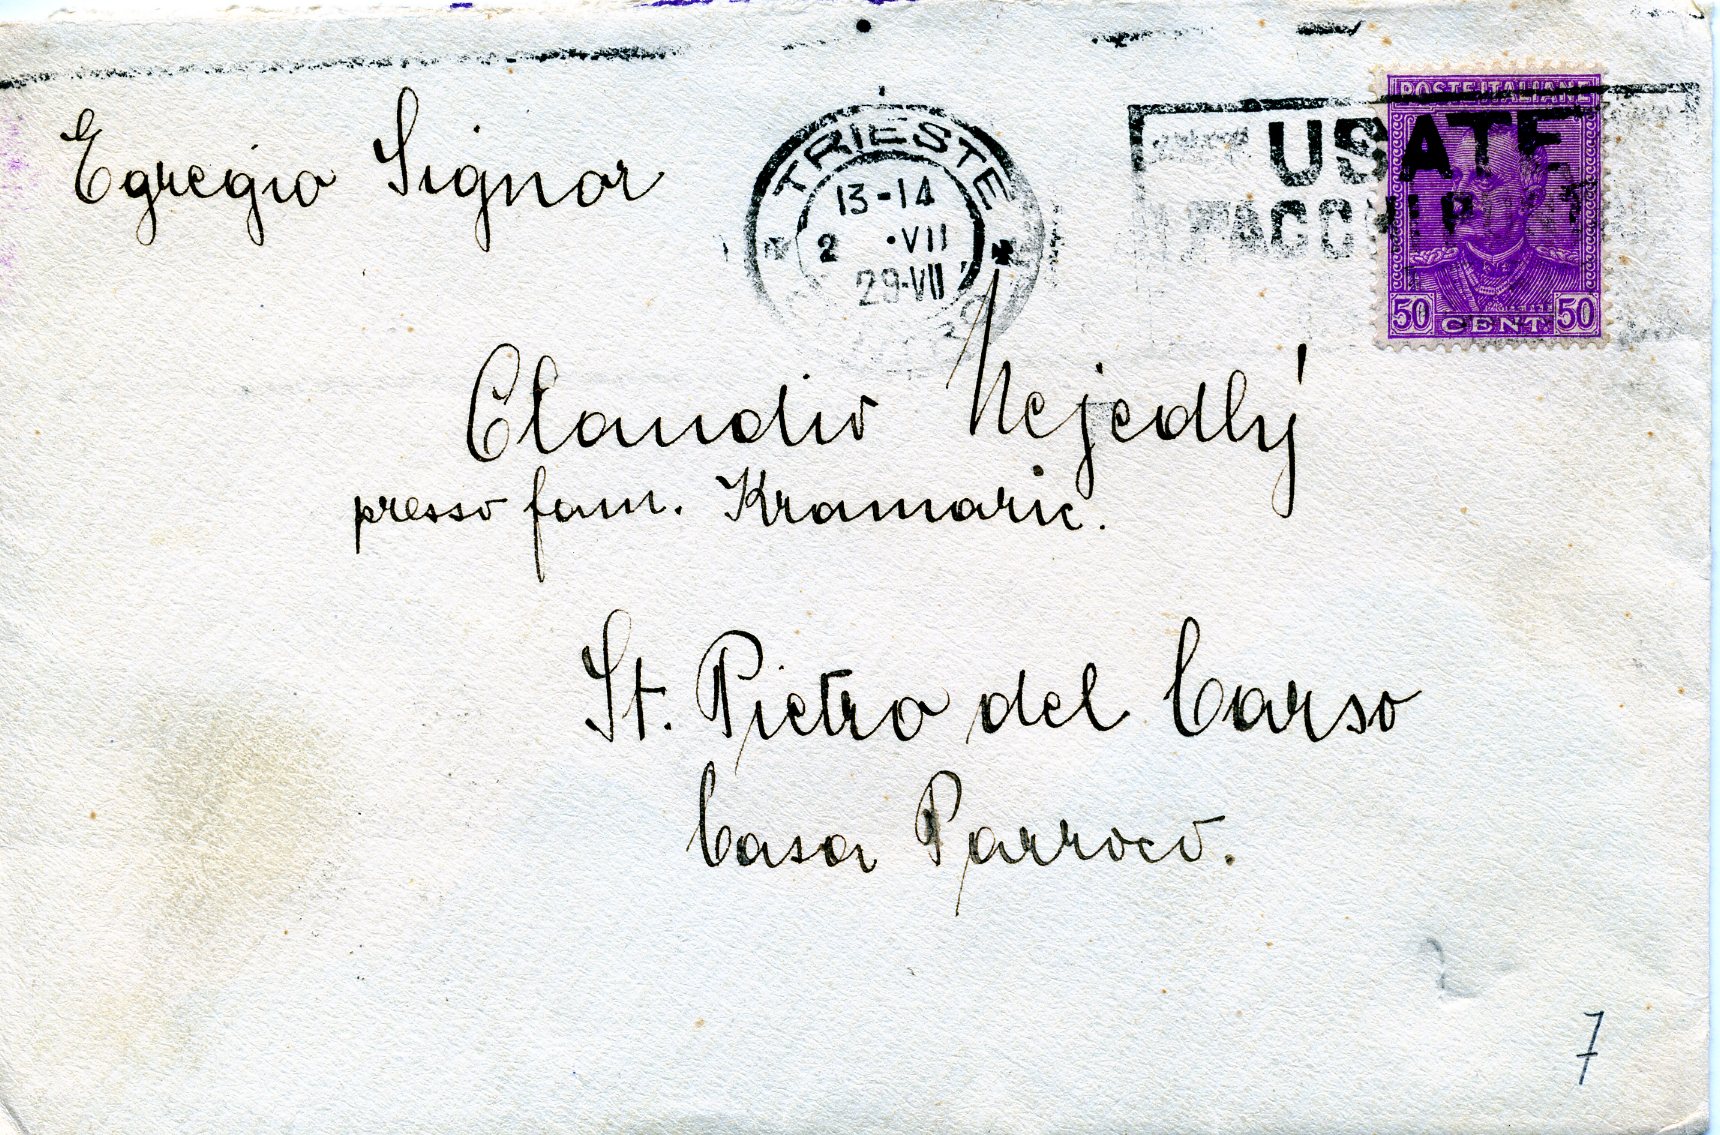 Egregio Signor
TRIESTE
13-14
2 ·VII
29·VII
USATE
POSTE ITALIANE
50 CENT 50
Claudio Nejedlý
presso fam. Kramaric.
St. Pietro del Carso
Casa Parroco.
2
7